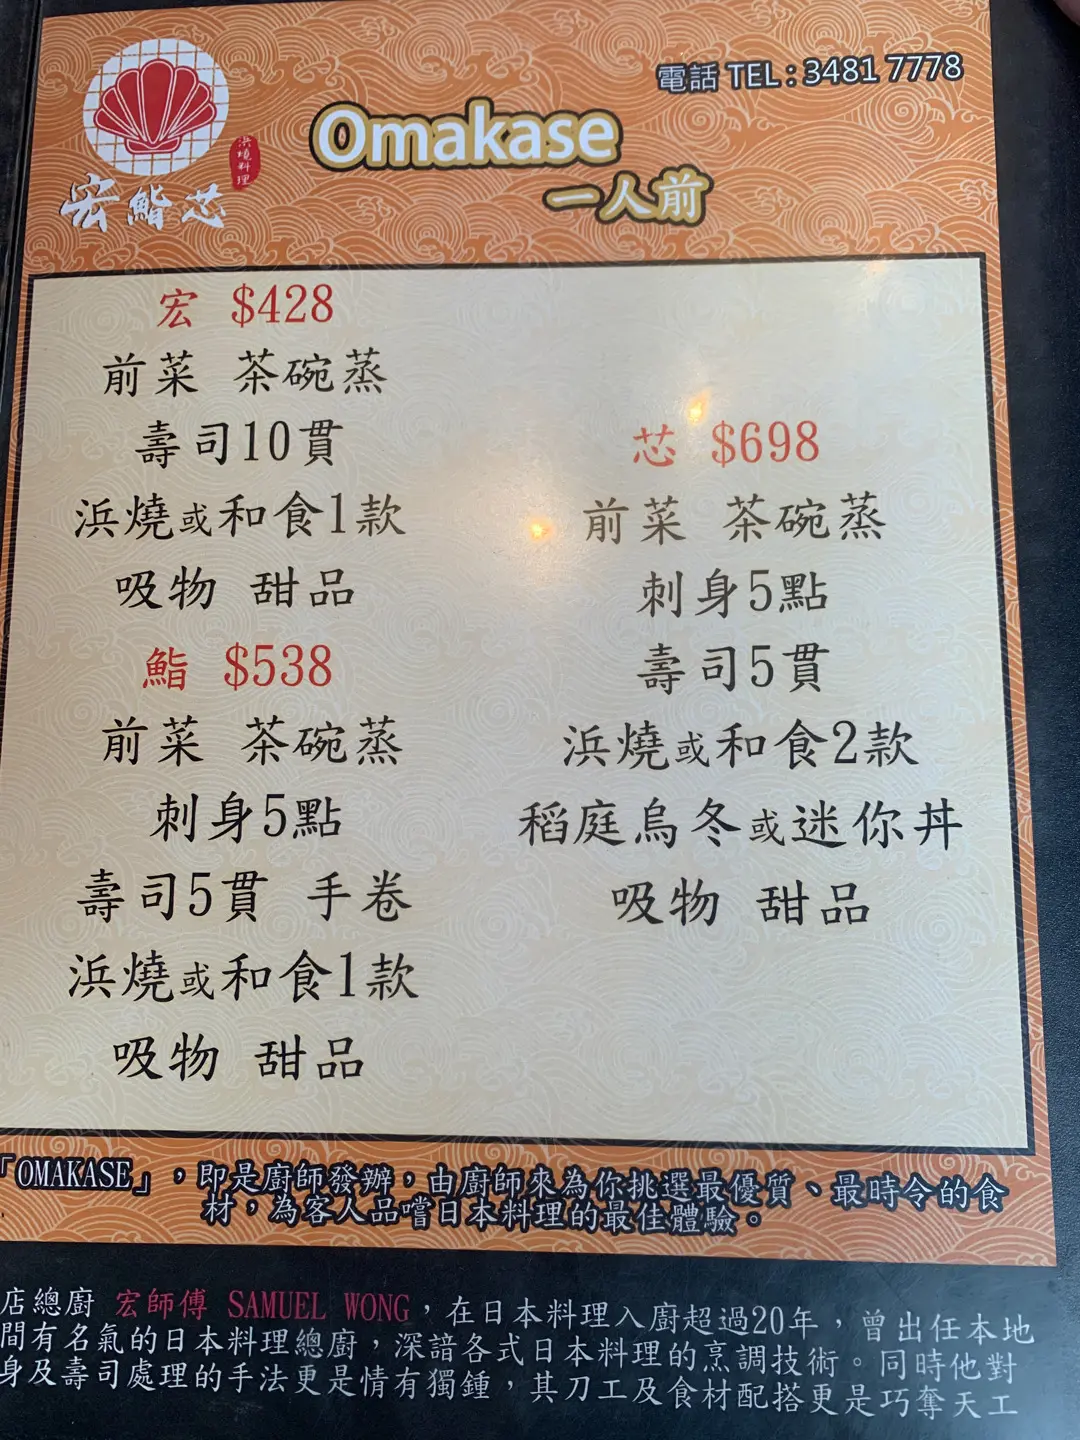 電話 TEL : 3481 7778
Omakase
一人前
浜燒料理
宏鮨芯
宏 $428
前菜 茶碗蒸
壽司10貫
浜燒或和食1款
吸物 甜品
鮨 $538
前菜 茶碗蒸
刺身5點
壽司5貫 手卷
浜燒或和食1款
吸物 甜品
芯 $698
前菜 茶碗蒸
刺身5點
壽司5貫
浜燒或和食2款
稻庭烏冬或迷你丼
吸物 甜品
「OMAKASE」，即是廚師發辦，由廚師來為你挑選最優質、最時令的食
材，為客人品嚐日本料理的最佳體驗。
店總廚 宏師傅 SAMUEL WONG，在日本料理入廚超過20年，曾出任本地
間有名氣的日本料理總廚，深諳各式日本料理的烹調技術。同時他對
身及壽司處理的手法更是情有獨鍾，其刀工及食材配搭更是巧奪天工